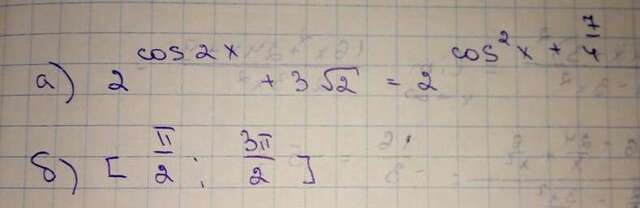 а) 2^{cos2x} + 3√2 = 2^{cos²x + 7/4}
б) [π/2; 3π/2]